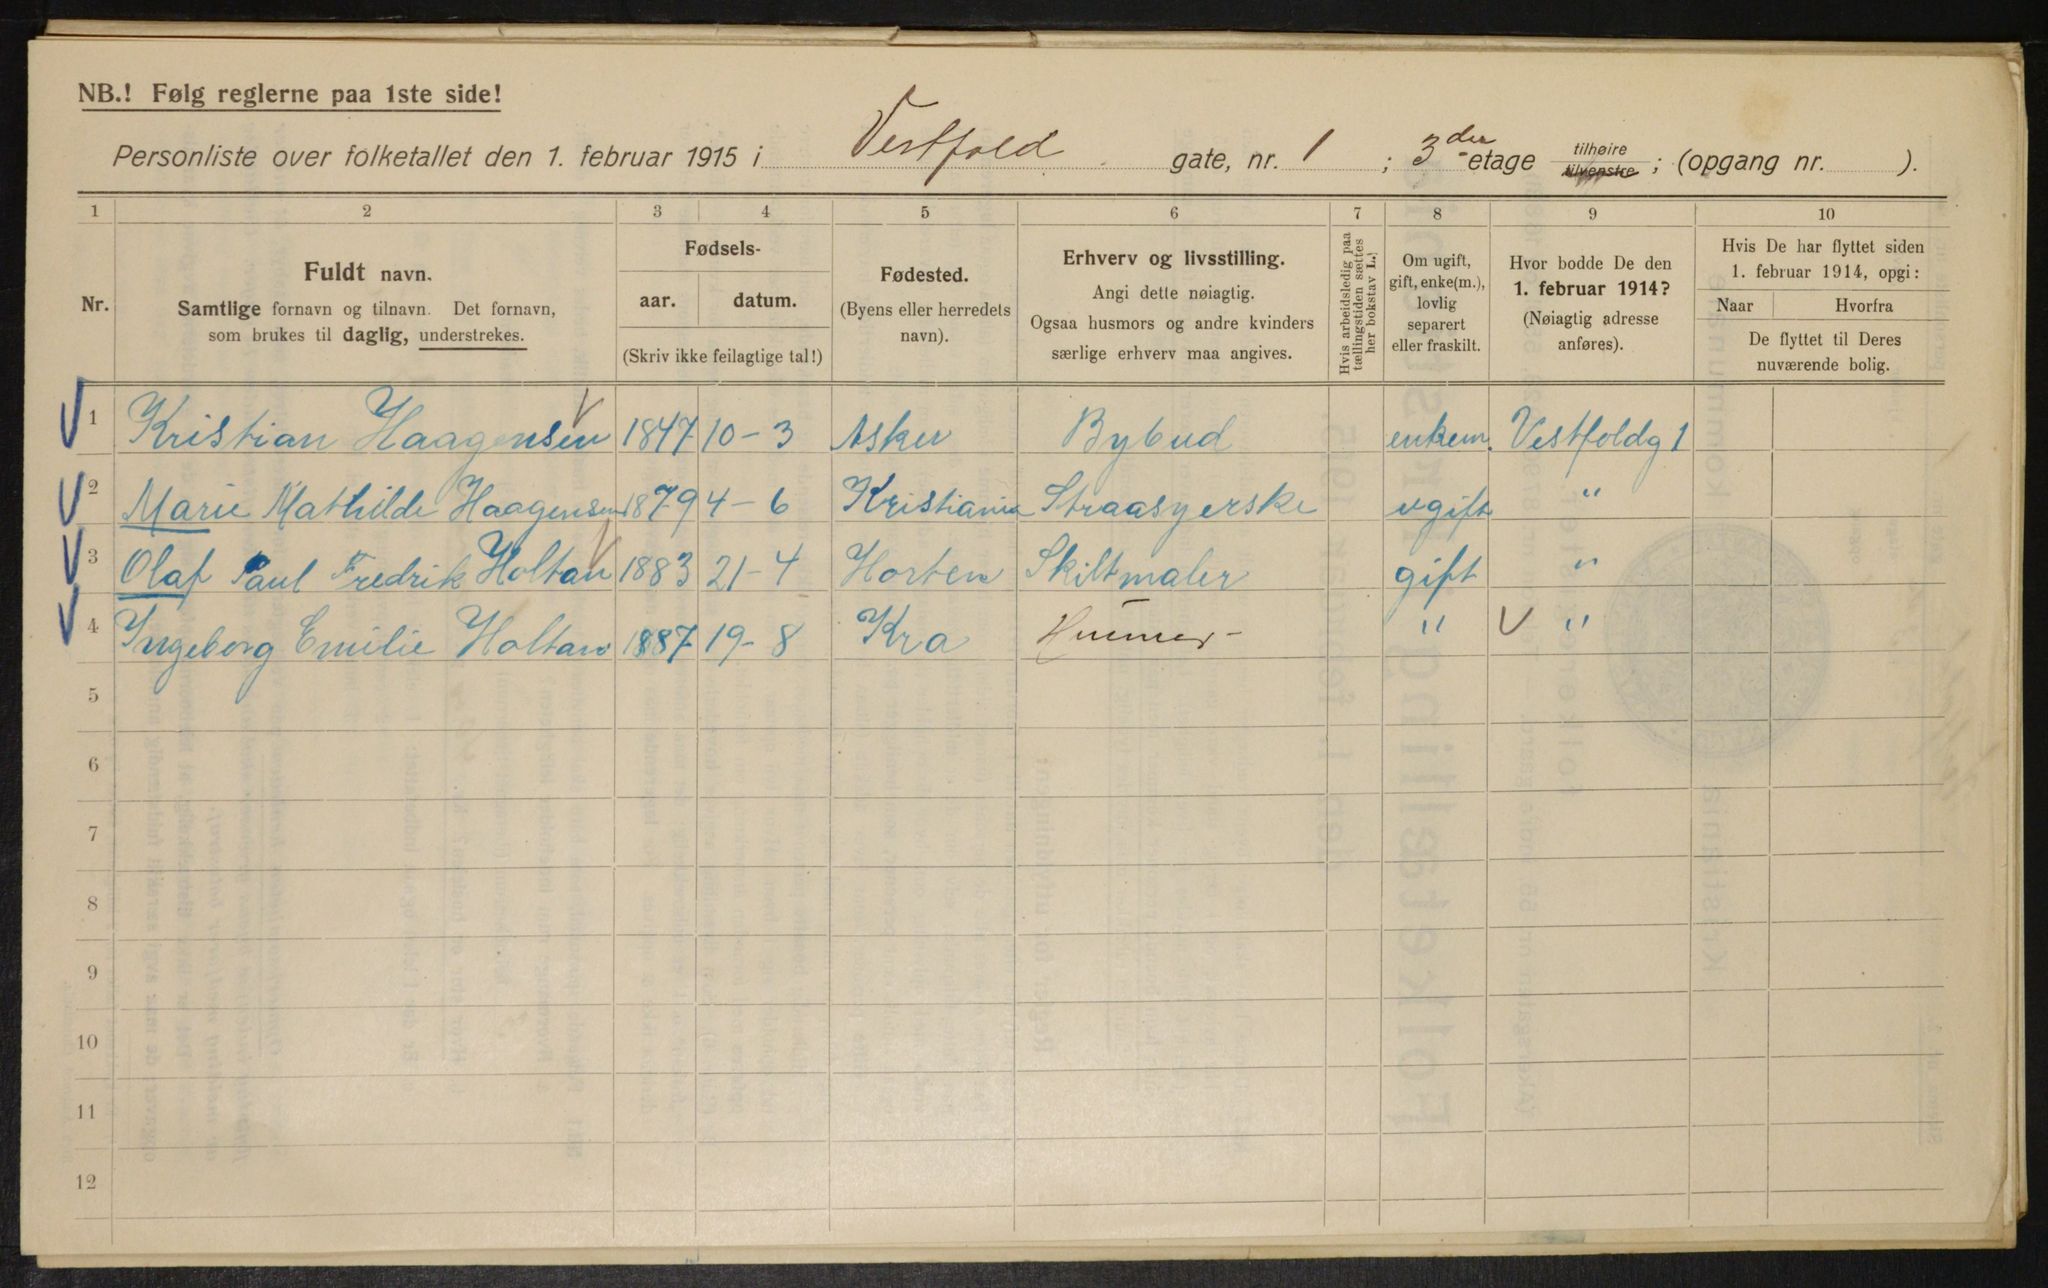 NB.! Følg reglerne paa 1ste side!
Personliste over folketallet den 1. februar 1915 i Vestfold gate, nr. 1 ; 3der etage tilhøire tilvenstre ; (opgang nr. ).
1 2 3 4 5 6 7 8 9 10
Nr.
Fuldt navn.
Samtlige fornavn og tilnavn. Det fornavn,
som brukes til daglig, understrekes.
Fødsels-
aar. datum.
(Skriv ikke feilagtige tal!)
Fødested.
(Byens eller herredets
navn).
Erhverv og livsstilling.
Angi dette nøiagtig.
Ogsaa husmors og andre kvinders
særlige erhverv maa angives.
Hvis arbeidsledig paa
tællingstiden sættes
her bokstav L.
Om ugift,
gift, enke(m.),
lovlig
separert
eller fraskilt.
Hvor bodde De den
1. februar 1914?
(Nøiagtig adresse
anføres).
Hvis De har flyttet siden
1. februar 1914, opgi:
Naar Hvorfra
De flyttet til Deres
nuværende bolig.
1 Kristian Haagensen 1847 10-3 Asker Bybud enkem. Vestfoldg 1
2 Marie Mathilde Haagensen 1879 4-6 Kristiania Straasyerske ugift "
3 Olaf Paul Fredrik Holtan 1883 21-4 Horten Skiltmaler gift "
4 Ingeborg Emilie Holtan 1887 19-8 Kra " "
5
6
7
8
9
10
11
12